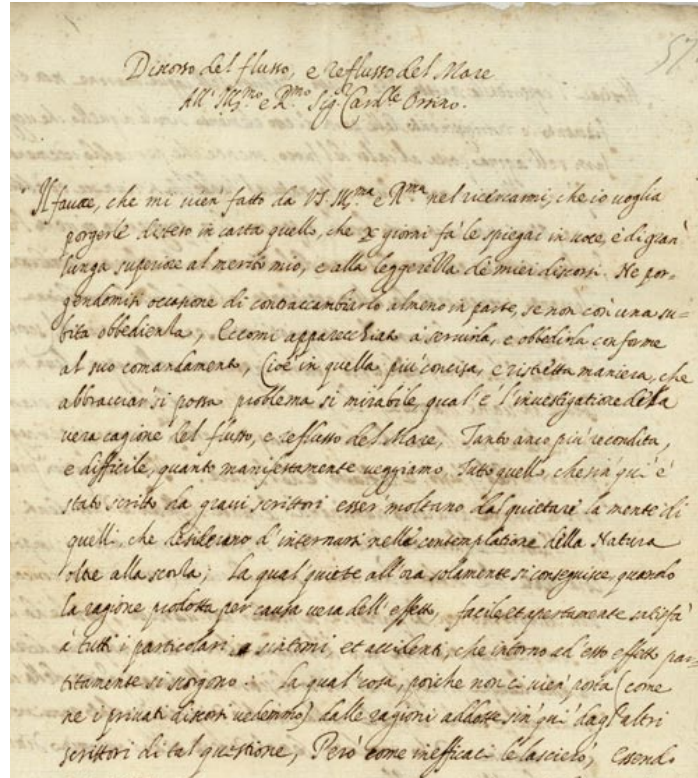 57
Discorso del flusso, e reflusso del Mare
All' Ill.mo e R.mo Sig.r Card.le Orsino.
Il favore, che mi vien' fatto da V.S. Ill.ma e R.ma nel ricercarmi, che io voglia
porgerle disteso in carta quello, che X giorni fà le spiegai in voce, è di gran'
lunga superiore al merito mio, e alla leggerezza de miei discorsi. Ne por=
gendomisi occasione di contraccambiarlo almeno in parte, se non con una su=
bita obbedienza, Eccomi apparecchiato à servirla, e obbedirla conforme
al suo comandamento, Cioè in quella più concisa, e ristretta maniera, che
abbracciar' si possa problema sì mirabile, qual' è l'investigatione della
vera cagione del flusso, e reflusso del Mare, Tanto anco più recondita,
e difficile, quanto manifestamente veggiamo, Tutto quello, che sin' quì è
stato scritto da gravi scrittori esser' molto lontano dal quietare la mente di
quelli, che desiderano d'internarsi nella contemplatione della Natura
oltre alla scorza; La qual' quiete all' ora solamente si conseguisce, quando
la ragione prodotta per causa vera dell' effetto, facile et apertamente satisfà
à tutti i particolari sintomi, et accidenti, che intorno ad' esso effetto par=
titamente si scorgono: La qual' cosa, poiche non ci vien' porta (come
ne i privati discorsi vedemmo) dalle ragioni addotte sin' quì dagl' altri
scrittori di tal questione, Però come inefficaci le lascierò, essendo